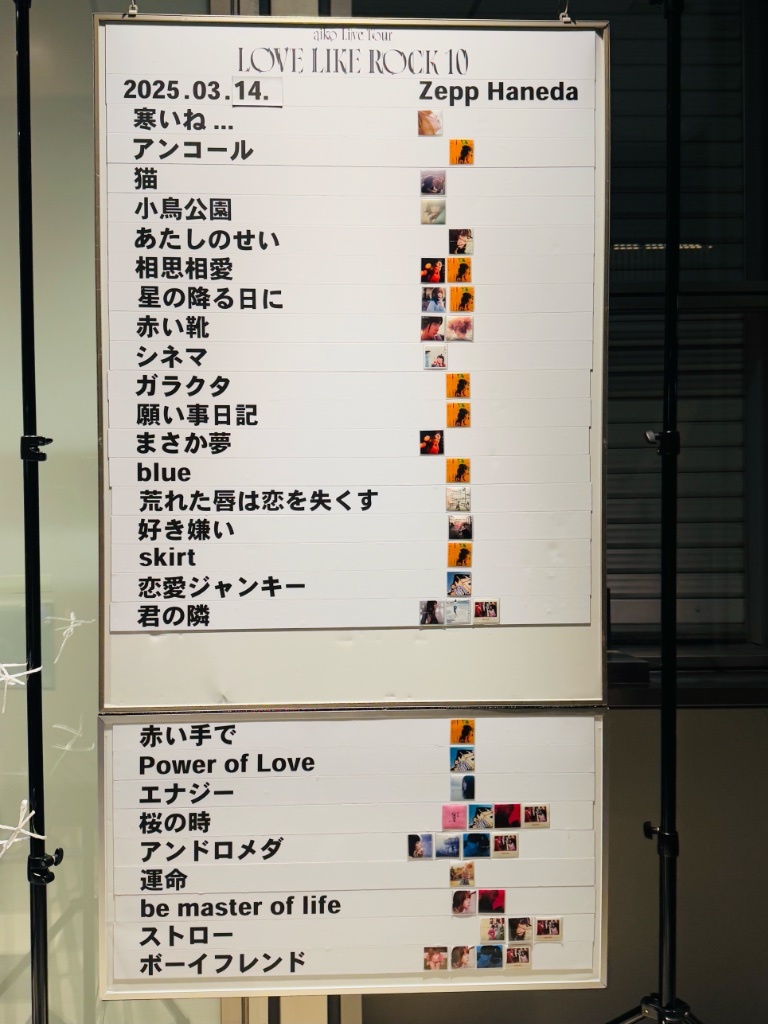 aiko Live Tour
LOVE LIKE ROCK 10
2025.03.14. Zepp Haneda
寒いね...
アンコール
猫
小鳥公園
あたしのせい
相思相愛
星の降る日に
赤い靴
シネマ
ガラクタ
願い事日記
まさか夢
blue
荒れた唇は恋を失くす
好き嫌い
skirt
恋愛ジャンキー
君の隣
赤い手で
Power of Love
エナジー
桜の時
アンドロメダ
運命
be master of life
ストロー
ボーイフレンド